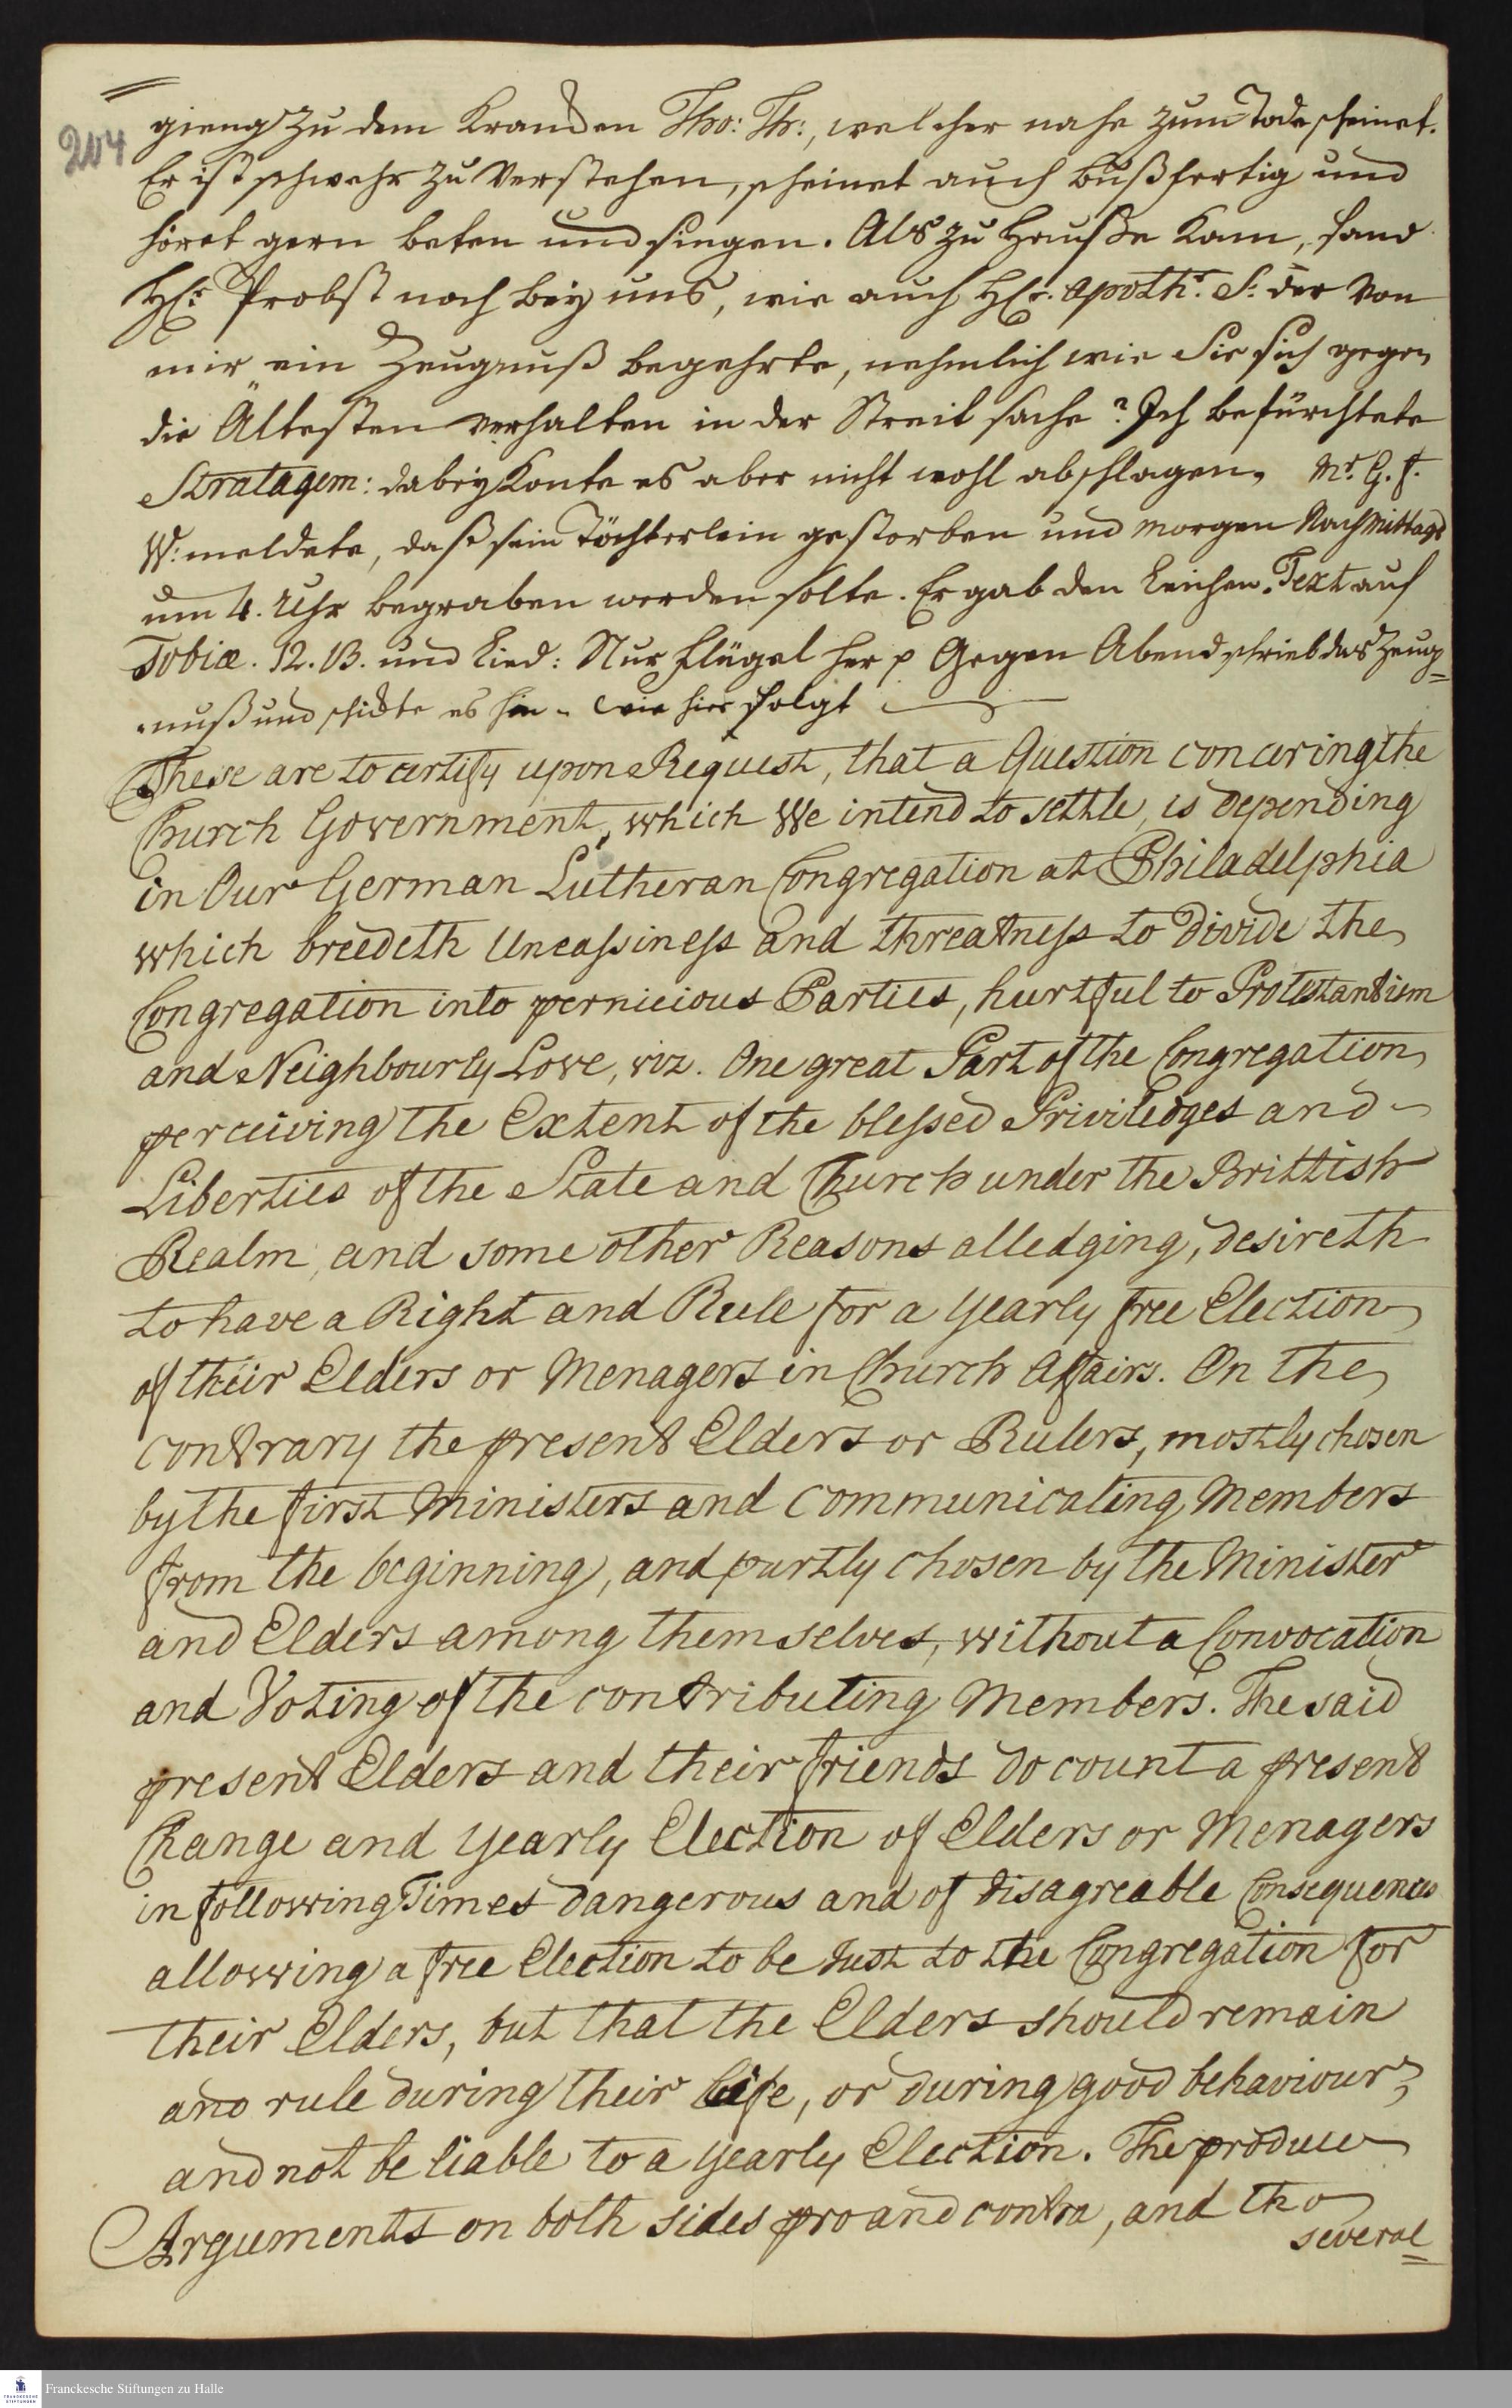 204
gieng zu dem Krancken Tho: Th:, welcher nahe zum Tode scheinet.
Er ist schwehr zu verstehen, scheinet auch bußfertig und
höret gern beten und singen. Als zu Hauße kam, fand
HEr. Probst noch bey uns, wie auch HEr. Apoth.r S: der von
mir ein Zeugnuß begehrte, nehmlich wie Sie sich gegen
die Ältesten verhalten in der Streit sache? Ich befürchtete
Stratagem: dabey konte es aber nicht wohl abschlagen. Mr. G. F.
W: meldete, daß sein Töchterlein gestorben und morgen NachMittags
um 4. Uhr begraben werden solte. Er gab den Leichen-Text auf
Tobiæ. 12. 13. und Lied: Nur flügel her p Gegen Abend schrieb das Zeug=
nuß und schickte es hin - wie hier folgt
These are to certify upon Request, that a Question concering the
Church Government, which We intend to settle, is depending
in Our German Lutheran Congregation at Philadelphia
which breedeth Uneassiness and threatness to Divide the
Congregation into pernicious Parties, hurtful to Protestantism
and Neighbourly Love, viz. One great Part of the Congregation
perceiving the Extent of the blessed Priviledges and
Liberties of the State and Church under the Brittish
Realm, and some other Reasons alledging, desireth
to have a Right and Rule for a yearly free Election
of their Elders or Menagers in Church Affairs. On the
contrary the present Elders or Rulers, mostly chosen
by the first Ministers and communicating Members
from the beginning, and partly chosen by the Minister
and Elders among themselves, without a Convocation
and Voting of the contributing Members. The said
present Elders and their friends do count a present
Change and yearly Election of Elders or Menagers
in following Times dangerous and of disagreable Consequences
allowing a free Election to be Just to the Congregation for
their Elders, but that the Elders should remain
and rule during their life, or during good behaviour,
and not be liable to a yearly Election. The produce
Arguments on both sides pro and contra, and tho
several
Franckesche Stiftungen zu Halle